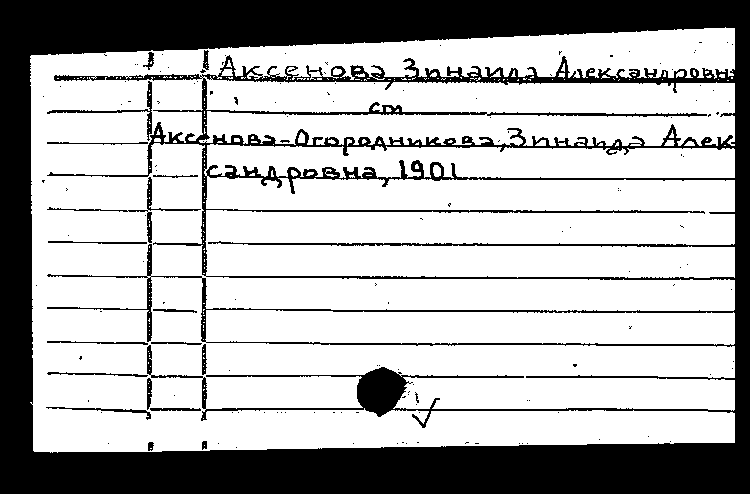 Аксенова, Зинаида Александровна
см
Аксенова-Огородникова, Зинаида Алек-
сандровна, 1901